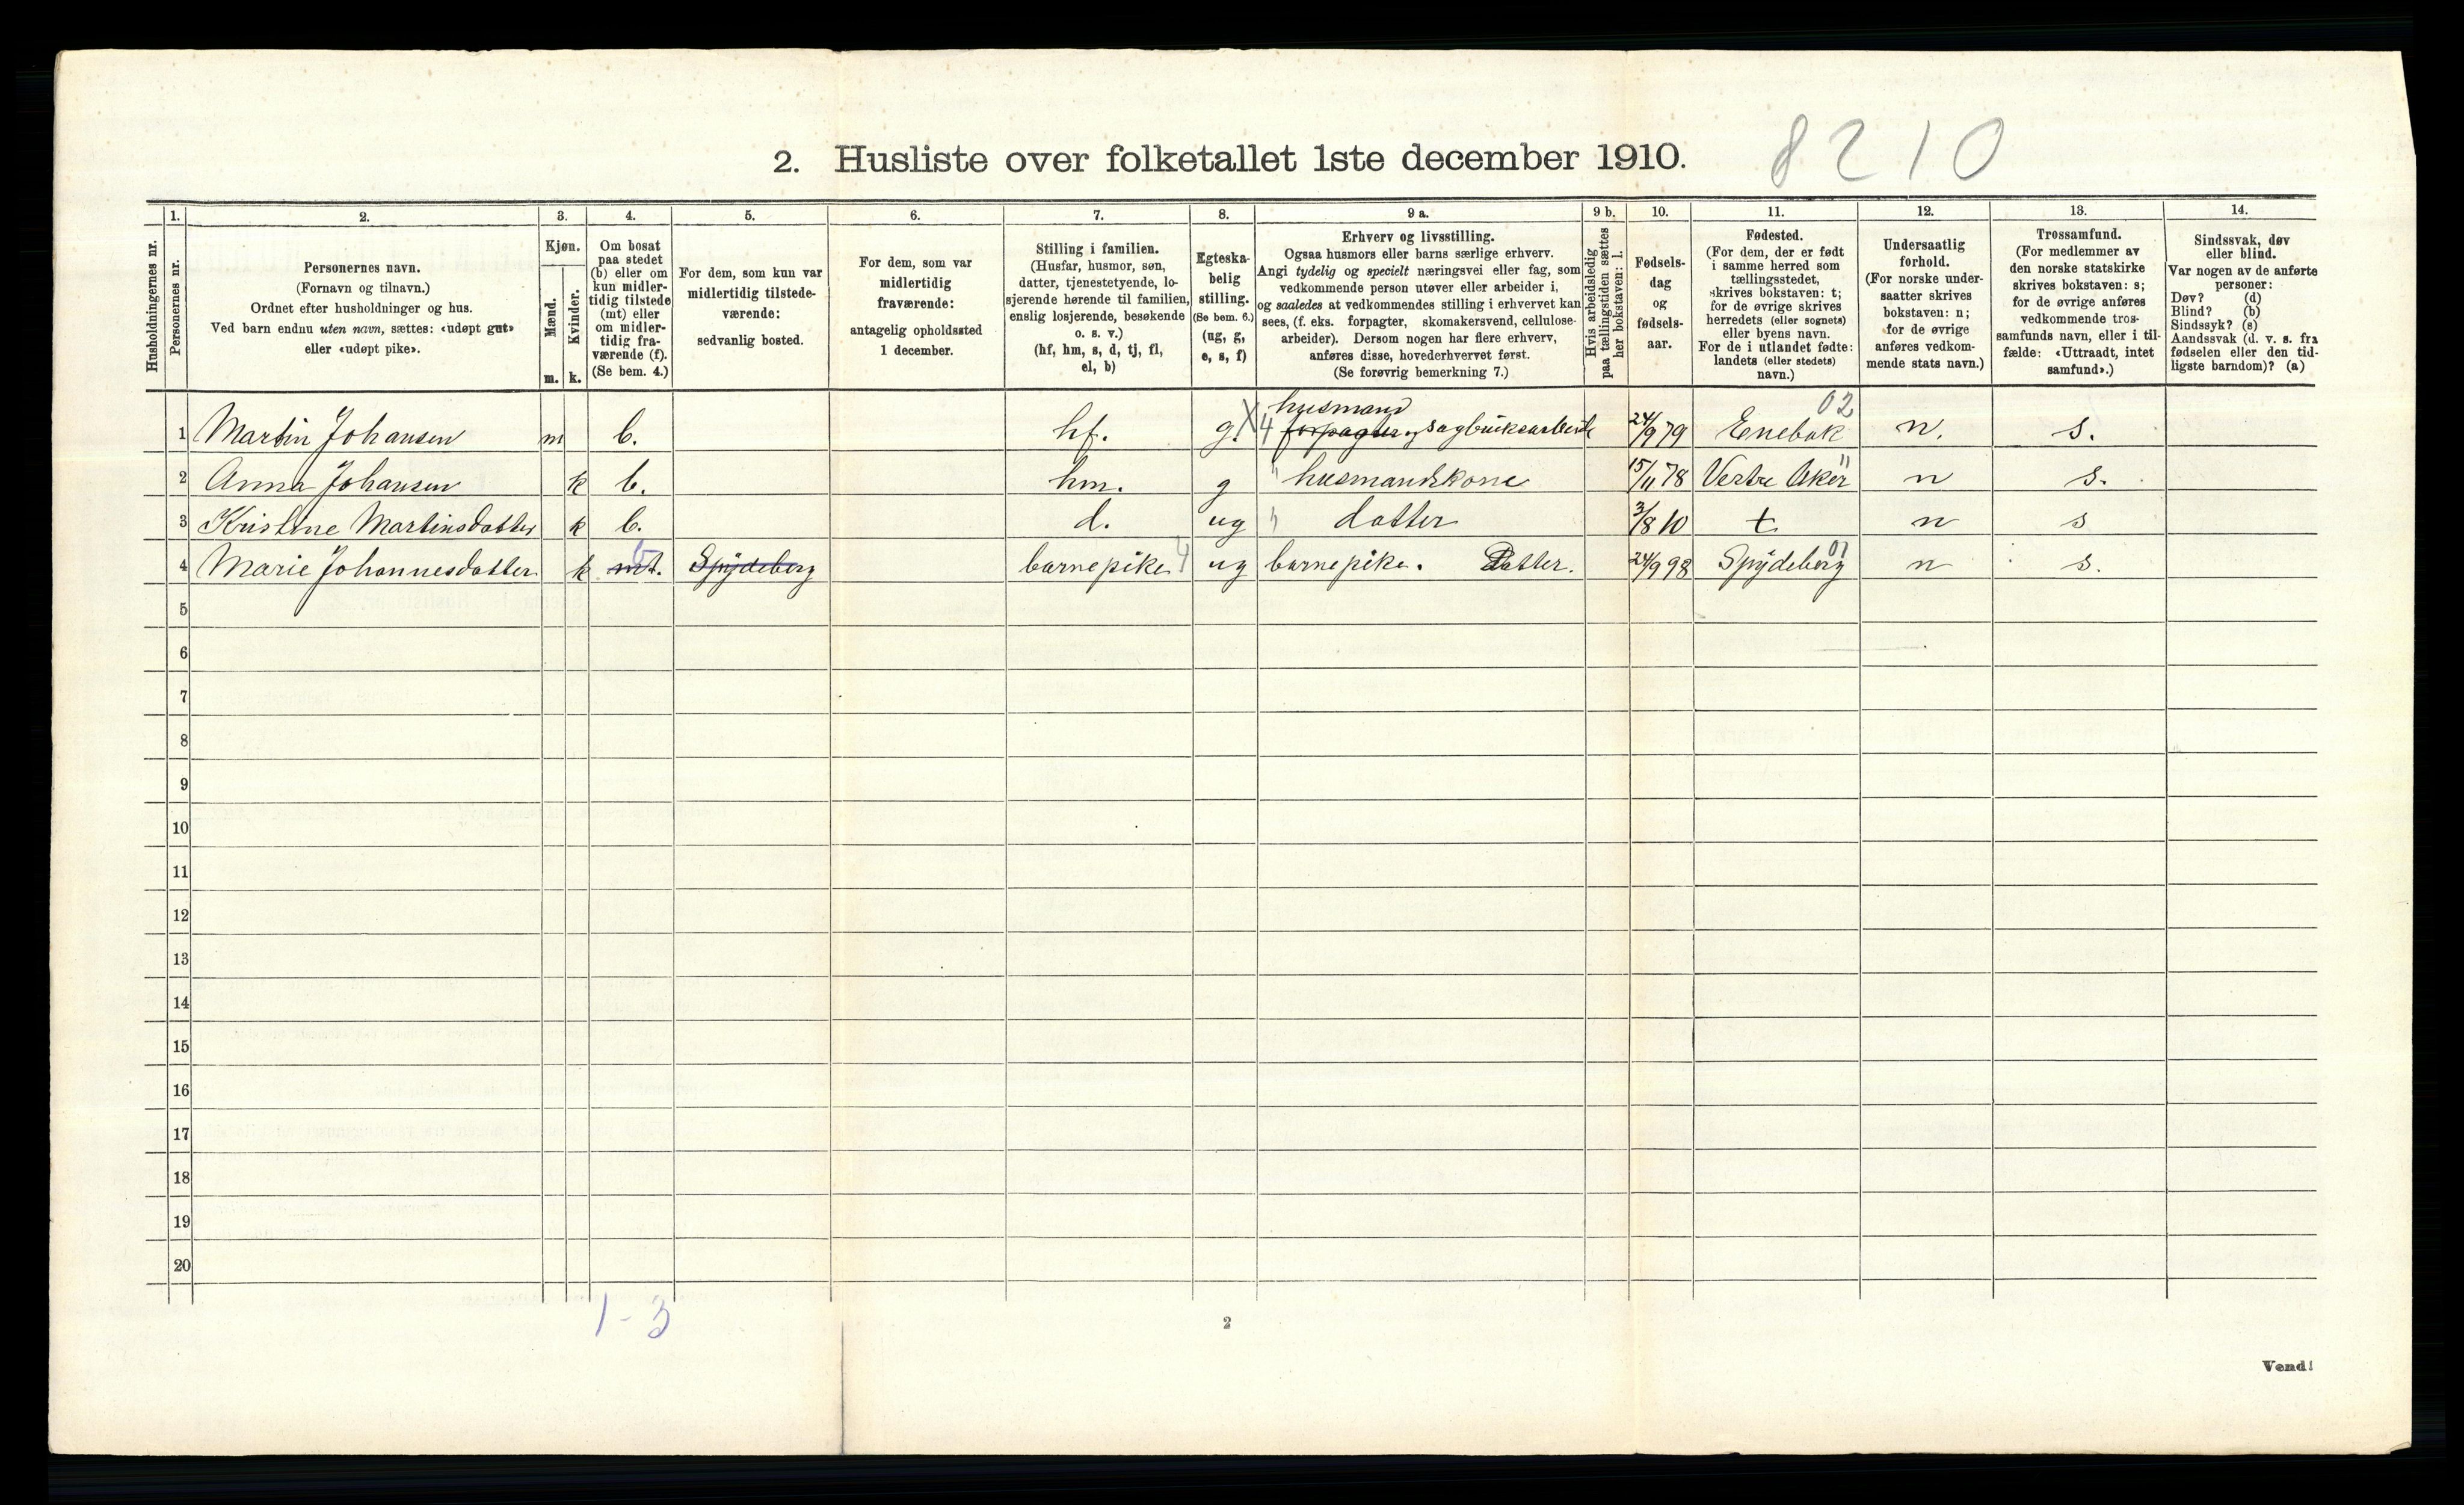 2. Husliste over folketallet 1ste december 1910. 8210
Husholdningernes nr.
1. Personernes nr.
2. Personernes navn.
(Fornavn og tilnavn.)
Ordnet efter husholdninger og hus.
Ved barn endnu uten navn, sættes: «udøpt gut»
eller «udøpt pike».
3. Kjøn.
Mænd. m.
Kvinder. k.
4. Om bosat
paa stedet
(b) eller om
kun midler-
tidig tilstede
(mt) eller
om midler-
tidig fra-
værende (f).
(Se bem. 4.)
5. For dem, som kun var
midlertidig tilstede-
værende:
sedvanlig bosted.
6. For dem, som var
midlertidig
fraværende:
antagelig opholdssted
1 december.
7. Stilling i familien.
(Husfar, husmor, søn,
datter, tjenestetyende, lo-
sjerende hørende til familien,
enslig losjerende, besøkende
o. s. v.)
(hf, hm, s, d, tj, fl,
el, b)
8. Egteska-
belig
stilling.
(Se bem. 6.)
(ug, g,
e, s, f)
9 a. Erhverv og livsstilling.
Ogsaa husmors eller barns særlige erhverv.
Angi tydelig og specielt næringsvei eller fag, som
vedkommende person utøver eller arbeider i,
og saaledes at vedkommendes stilling i erhvervet kan
sees, (f. eks. forpagter, skomakersvend, cellulose-
arbeider). Dersom nogen har flere erhverv,
anføres disse, hovederhvervet først.
(Se forøvrig bemerkning 7.)
9 b. Hvis arbeidsledig
paa tællingstiden sættes
her bokstaven: l.
10. Fødsels-
dag
og
fødsels-
aar.
11. Fødested.
(For dem, der er født
i samme herred som
tællingsstedet,
skrives bokstaven: t;
for de øvrige skrives
herredets (eller sognets)
eller byens navn.
For de i utlandet fødte:
landets (eller stedets)
navn.)
12. Undersaatlig
forhold.
(For norske under-
saatter skrives
bokstaven: n;
for de øvrige
anføres vedkom-
mende stats navn.)
13. Trossamfund.
(For medlemmer av
den norske statskirke
skrives bokstaven: s;
for de øvrige anføres
vedkommende tros-
samfunds navn, eller i til-
fælde: «Uttraadt, intet
samfund».)
14. Sindssvak, døv
eller blind.
Var nogen av de anførte
personer:
Døv? (d)
Blind? (b)
Sindssyk? (s)
Aandssvak (d. v. s. fra
fødselen eller den tid-
ligste barndom)? (a)
husmand 02
1 Martin Johansen m b. hf. g. X4 forpagter og sagbruksarbeide 24/9 79 Enebak n. s.
2 Anna Johansen k b. hm. g " husmandskone 15/11 78 Vestre Aker " n s.
3 Kristine Martinsdatter k b. d. ug " datter 3/8 10 t n s
b 01
4 Marie Johannesdatter k mt. Spydeberg barnepike 4 ug barnepike. Datter. 24/9 98 Spydeberg n s.
5
6
7
8
9
10
11
12
13
14
15
16
17
18
19
20
1-3
2
Vend!